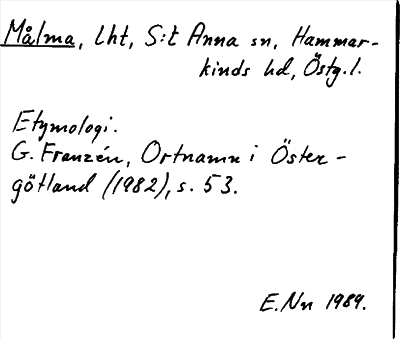 Målma, Lht, S:t Anna sn, Hammar-
kinds hd, Östg.l.
Etymologi.
G. Franzén, Ortnamn i Öster-
götland (1982), s. 53.
E.Nn 1989.